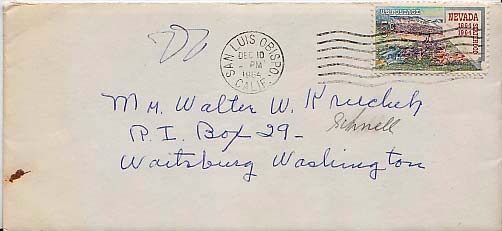 U.S. POSTAGE
NEVADA
1864
1964
SAN LUIS OBISPO,
DEC 10
PM
1964
CALIF.
Mr. Walter W.
R. I. Box 29-
Schnell
Waitsburg Washington